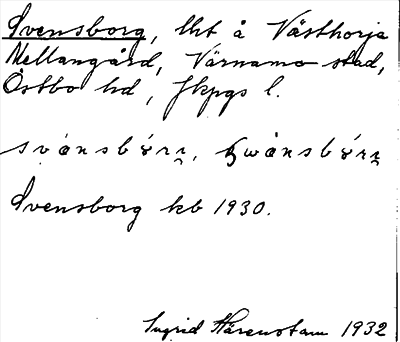 Svensborg, lht å Västhorja
Mellangård, Värnamo stad,
Östbo hd, Jkpgs l.
Svensborg kb 1930.
Ingrid Härenstam 1932